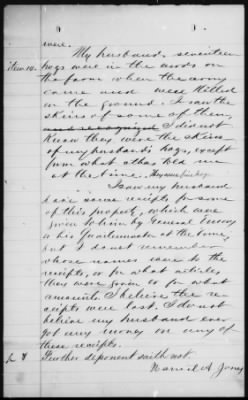 were.
Item 10. My husband's seventeen
hogs were in the woods on
the farm when the army
came and were killed
on the ground. I saw the
skins of some of them,
and recognized I did not
know they were the skins
of my husband's hogs, except
from what others told me
at the time. They were fine hogs.
I saw my husband
have some receipts for some
of this property, which were
given to him by General
or his Quartermaster at the time,
but I do not remember
whose names were to the
receipts, or for what articles
they were given or for what
amounts. I believe the re-
ceipts were lost. I do not
believe my husband ever
got any money on any of
these receipts.
Further deponent saith not.
Harriet A. Jones